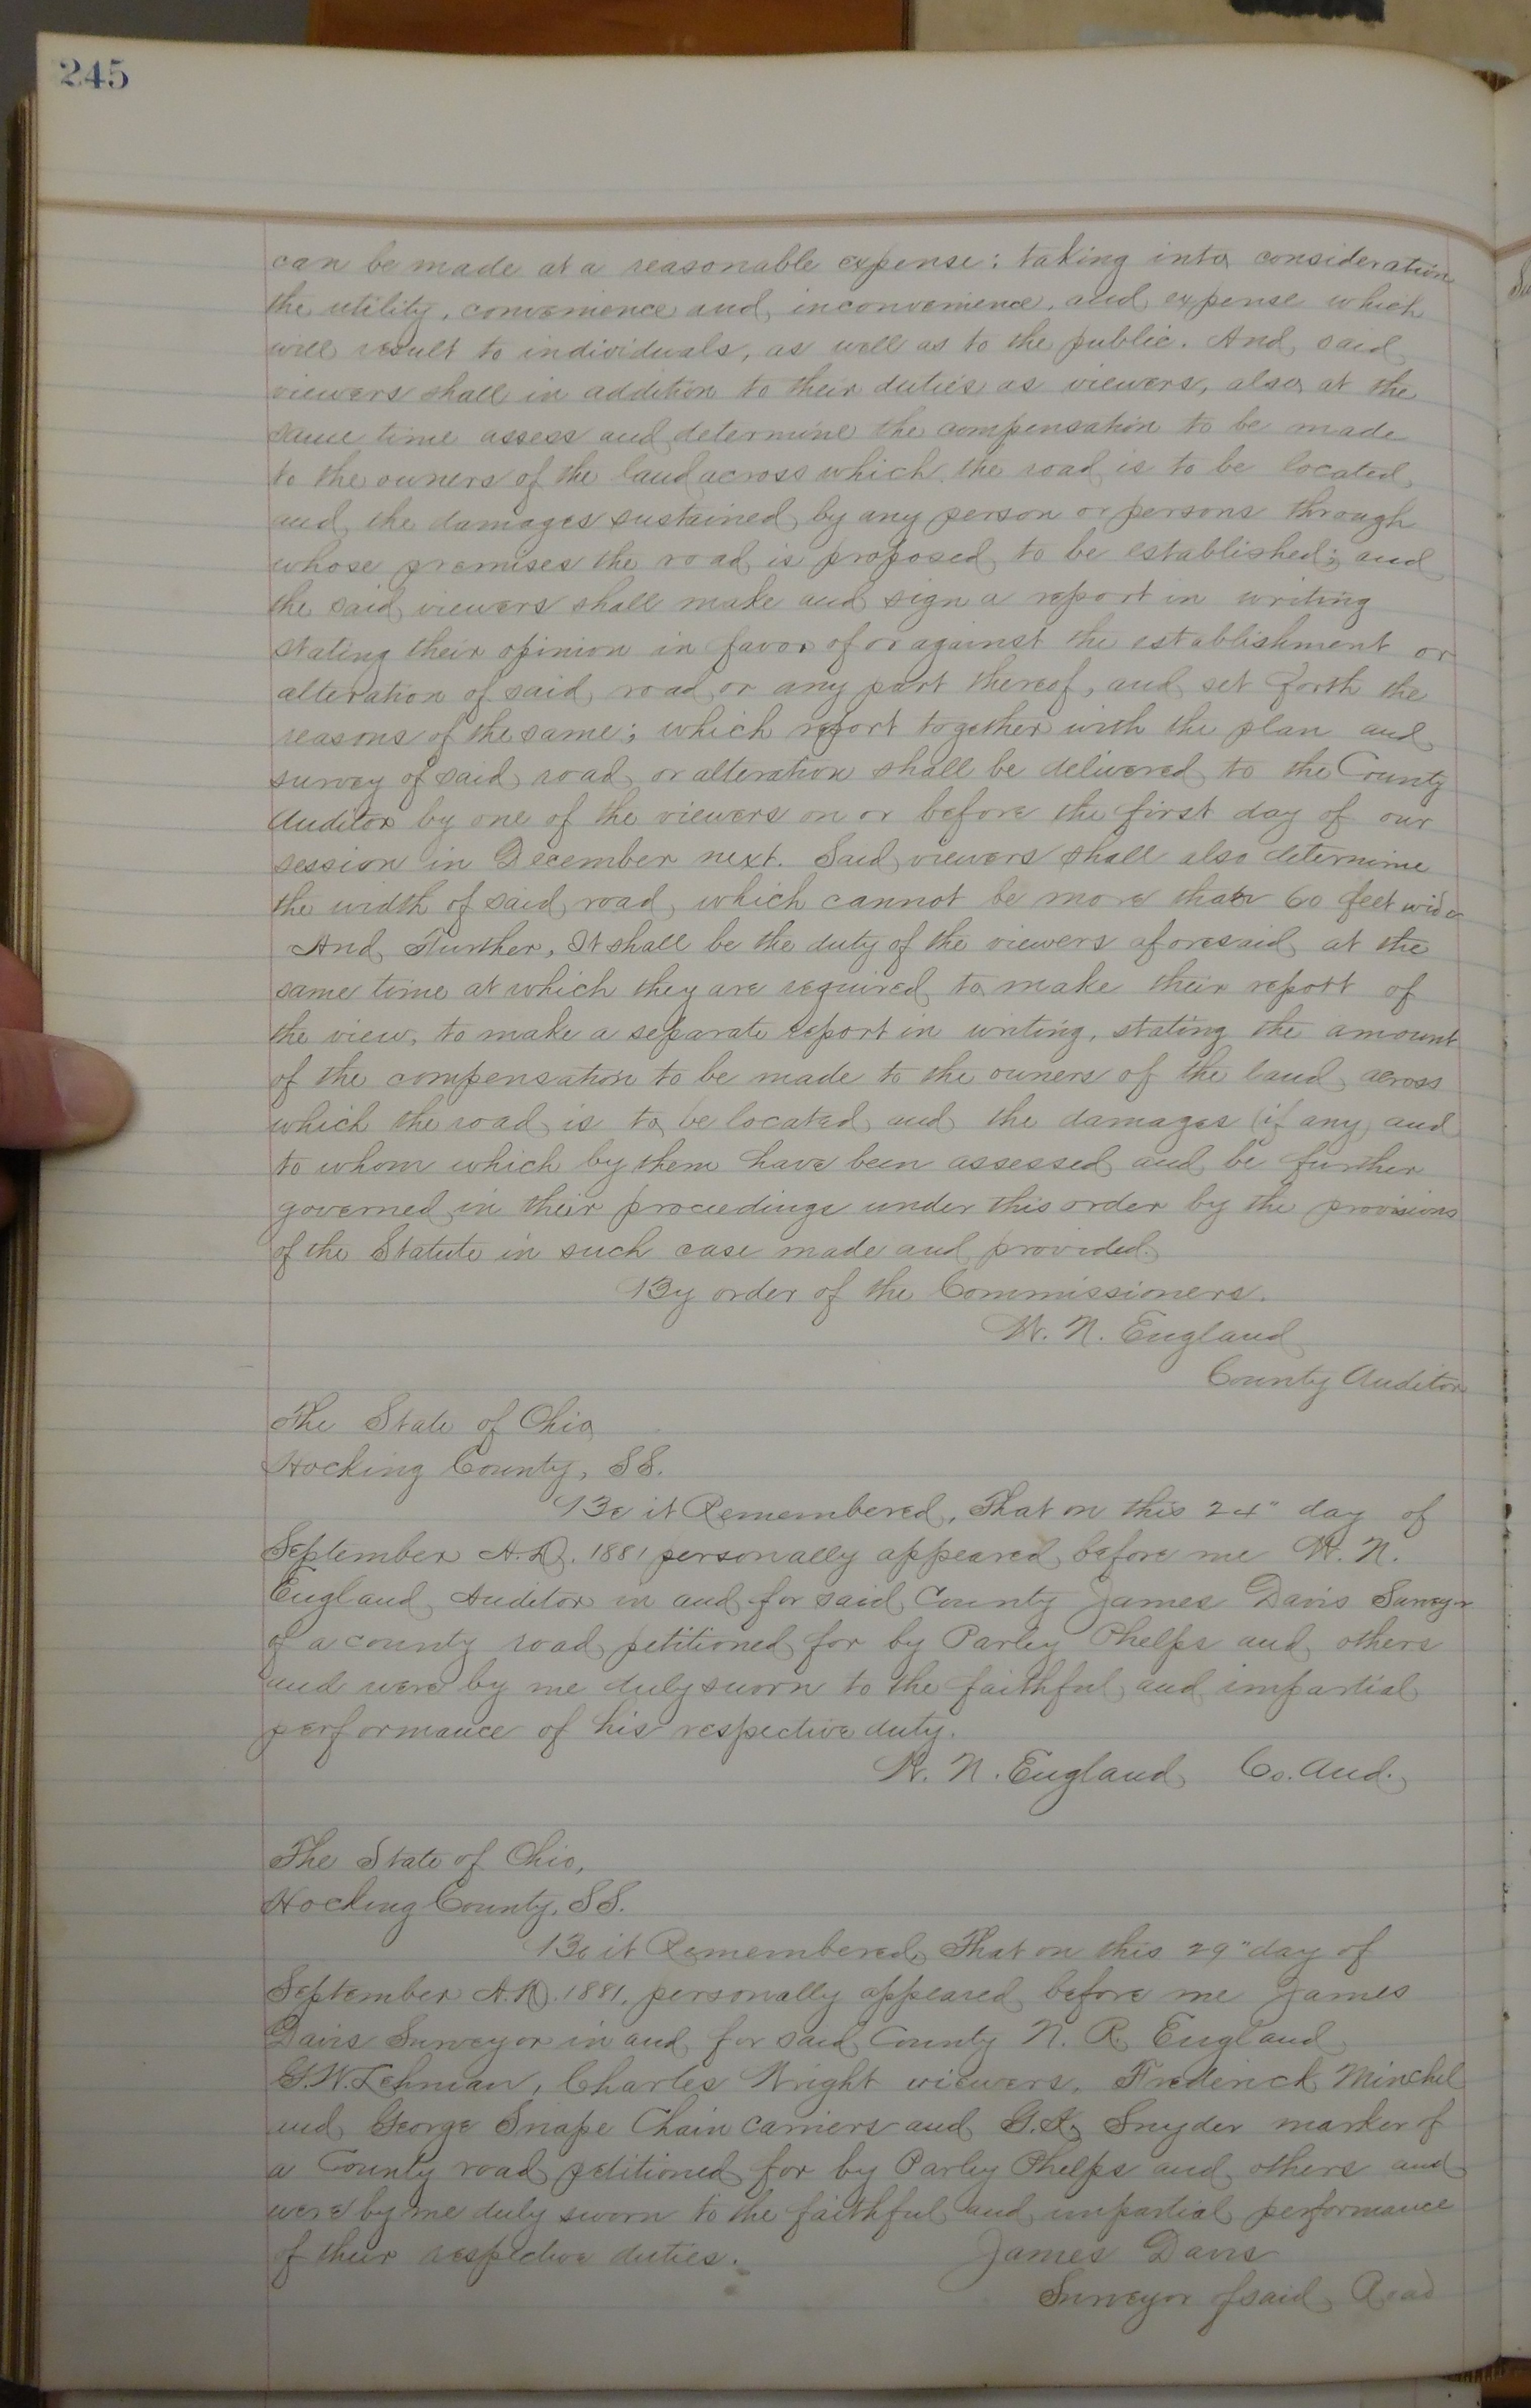 245
can be made at a reasonable expense: taking into consideration
the utility, convenience and inconvenience, and expense which
will result to individuals, as well as to the public. And said
viewers shall in addition to their duties as viewers, also at the
same time assess and determine the compensation to be made
to the owners of the land across which the road is to be located,
and the damages sustained by any person or persons through
whose premises the road is proposed to be established; and
the said viewers shall make and sign a report in writing
stating their opinion in favor of or against the establishment or
alteration of said road or any part thereof, and set forth the
reasons of the same; which report together with the plan and
survey of said road or alteration shall be delivered to the County
Auditor by one of the viewers on or before the first day of our
session in December next. Said viewers shall also determine
the width of said road, which cannot be more than 60 feet wide
And Further, It shall be the duty of the viewers aforesaid at the
same time at which they are required to make their report of
the view, to make a separate report in writing, stating the amount
of the compensation to be made to the owners of the land across
which the road is to be located and the damages (if any) and
to whom which by them have been assessed and be further
governed in their proceedings under this order by the provisions
of the Statute in such case made and provided.
By order of the Commissioners.
W. N. England
County Auditor
The State of Ohio
Hocking County, SS.
Be it Remembered, That on this 24" day of
September A.D. 1881 personally appeared before me W. N.
England Auditor in and for said County James Davis Surveyor
of a county road petitioned for by Parley Phelps and others
and were by me duly sworn to the faithful and impartial
performance of his respective duty.
W. N. England Co. Aud.
The State of Ohio,
Hocking County, SS.
Be it Remembered, That on this 29" day of
September A.D. 1881, personally appeared before me James
Davis Surveyor in and for said County N. R. England
G.W. Lehman, Charles Wright viewers, Frederick Minchel
and George Snape Chain carriers and G.K. Snyder marker of
a County road petitioned for by Parley Phelps and others and
were by me duly sworn to the faithful and impartial performance
of their respective duties. James Davis
Surveyor of said Road